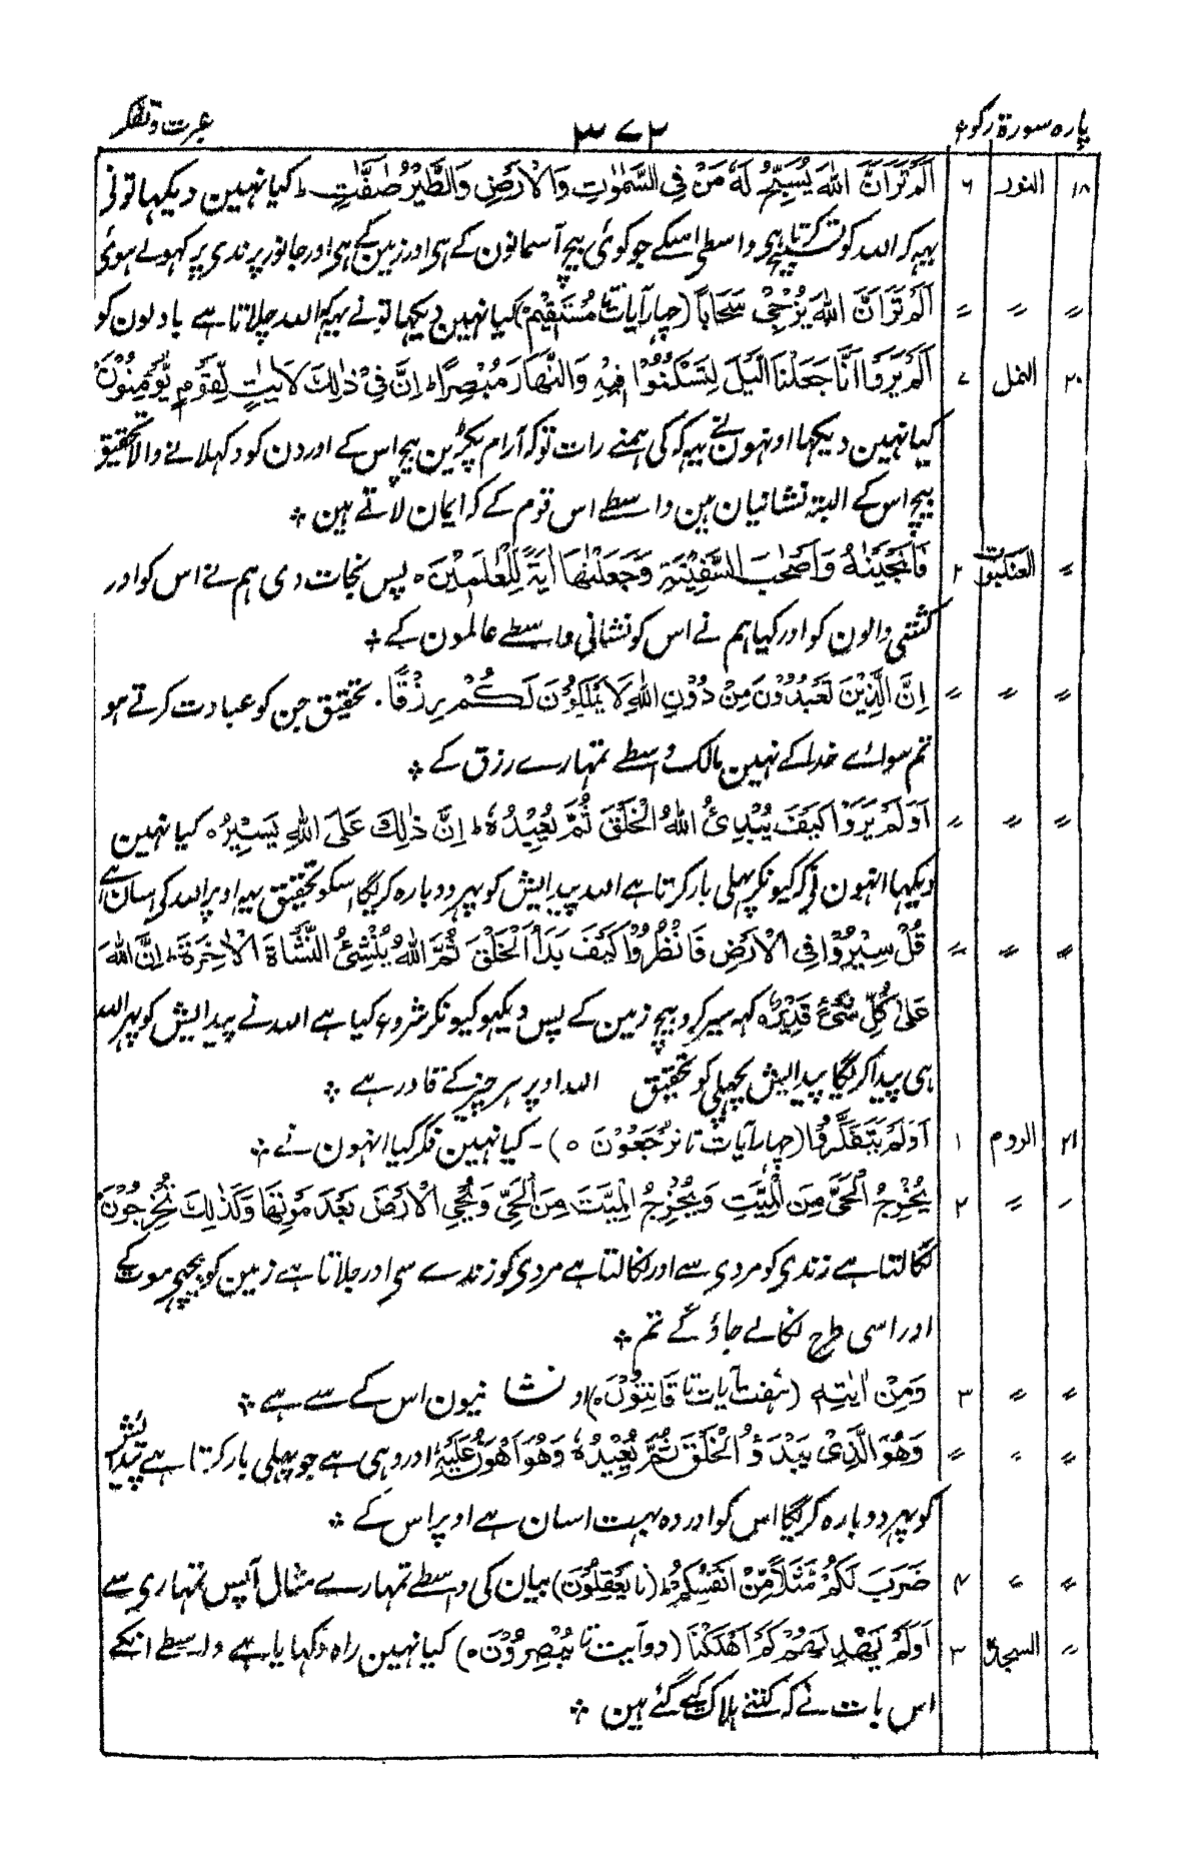 پارہ سورۃ رکوع ۳۷۲ عبرت و تفکر
۱۸ النور ۶ اَلَمْ تَرَ اَنَّ اللّٰهَ يُسَبِّحُ لَهٗ مَنْ فِي السَّمٰوٰتِ وَالْاَرْضِ وَالطَّيْرُ صٰٓفّٰتٍ ط کیا نہین دیکہا تو نی
یہہ کہ اللہ کو تسبیح کرتا ہی واسطی اسکے جو کوئی بیچ آسمانون کے ہی اور زمین کے ہی اور جانور پرندی پر کہولے ہوئی
〃 〃 〃 اَلَمْ تَرَ اَنَّ اللّٰهَ يُزْجِيْ سَحَابًا (چہار آیات تا مُسْتَقِيْمٍ) کیا نہین دیکہا تونے یہہ کہ اللہ چلاتا ہے بادلون کو
۲۰ النمل ۷ اَلَمْ يَرَوْا اَنَّا جَعَلْنَا الَّيْلَ لِتَسْكُنُوْا فِيْهِ وَالنَّهَارَ مُبْصِرًا ط اِنَّ فِيْ ذٰلِكَ لَاٰيٰتٍ لِّقَوْمٍ يُّؤْمِنُوْنَ
کیا نہین دیکہا اونہون نے یہہ کہ کی ہمنے رات تو کہ آرام پکڑین بیچ اس کے اور دن کو دکہلانے والا تحقیق
بیچ اس کے البتہ نشانیان ہین واسطے اس قوم کے کہ ایمان لاتے ہین ÷
〃 العنکبوت ۲ فَاَنْجَيْنٰهُ وَاَصْحٰبَ السَّفِيْنَةِ وَجَعَلْنٰهَا اٰيَةً لِّلْعٰلَمِيْنَ ٥ پس نجات دی ہم نے اس کو اور
کشتی والون کو اور کیا ہم نے اس کو نشانی واسطے عالمون کے ÷
〃 〃 〃 اِنَّ الَّذِيْنَ تَعْبُدُوْنَ مِنْ دُوْنِ اللّٰهِ لَا يَمْلِكُوْنَ لَكُمْ رِزْقًا ۔ تحقیق جن کو عبادت کرتے ہو
تم سوائے خدا کے نہین مالک واسطے تمہارے رزق کے ÷
〃 〃 〃 اَوَلَمْ يَرَوْا كَيْفَ يُبْدِئُ اللّٰهُ الْخَلْقَ ثُمَّ يُعِيْدُهٗ ط اِنَّ ذٰلِكَ عَلَى اللّٰهِ يَسِيْرٌ ٥ کیا نہین
دیکہا انہون نے کہ کیونکر پہلی بار کرتا ہے اللہ پیدایش کو پہر دوبارہ کریگا اسکو تحقیق یہہ اوپر اللہ کی اسان ہے
〃 〃 〃 قُلْ سِيْرُوْا فِي الْاَرْضِ فَانْظُرُوْا كَيْفَ بَدَاَ الْخَلْقَ ثُمَّ اللّٰهُ يُنْشِئُ النَّشْاَةَ الْاٰخِرَةَ ط اِنَّ اللّٰهَ
عَلٰى كُلِّ شَيْءٍ قَدِيْرٌ ٥ کہہ سیر کرو بیچ زمین کے پس دیکہو کیونکر شروع کیا ہے اللہ نے پیدایش کو پہر اللہ
ہی پیدا کریگا پیدایش پچھلی کو تحقیق اللہ اوپر ہر چیز کے قادر ہے ÷
۲۱ الروم ۱ اَوَلَمْ يَتَفَكَّرُوْا (چہار آیات تا تُرْجَعُوْنَ ٥) ۔ کیا نہین فکر کیا انہون نے ÷
〃 〃 ۲ يُخْرِجُ الْحَيَّ مِنَ الْمَيِّتِ وَيُخْرِجُ الْمَيِّتَ مِنَ الْحَيِّ وَيُحْيِ الْاَرْضَ بَعْدَ مَوْتِهَا وَكَذٰلِكَ تُخْرَجُوْنَ
نکالتا ہے زندی کو مردی سے اور نکالتا ہے مردی کو زندے سی اور جلاتا ہے زمین کو پیچھے موت کے
اور اسی طرح نکالے جاؤ گے تم ÷
〃 〃 ۳ وَمِنْ اٰيٰتِهٖ (ہفت آیات تا قَانِتُوْنَ ٥) اور نشانیون اس کے سے ہے ÷
〃 〃 〃 وَهُوَ الَّذِيْ يَبْدَؤُ الْخَلْقَ ثُمَّ يُعِيْدُهٗ وَهُوَ اَهْوَنُ عَلَيْهِ ط اور وہی ہے جو پہلی بار کرتا ہے پیدایش
کو پہر دوبارہ کریگا اس کو اور وہ بہت اسان ہے اوپر اس کے ÷
〃 〃 ۴ ضَرَبَ لَكُمْ مَّثَلًا مِّنْ اَنْفُسِكُمْ ط (تا يَعْقِلُوْنَ) بیان کی واسطے تمہارے مثال آپس تمہاری سے
〃 السجدۃ ۳ اَوَلَمْ يَهْدِ لَهُمْ كَمْ اَهْلَكْنَا (دو آیت تا يُبْصِرُوْنَ ٥) کیا نہین راہ دکہایا ہے واسطے انکے
اس بات نے کہ کتنے ہلاک کیے گئے ہین ÷